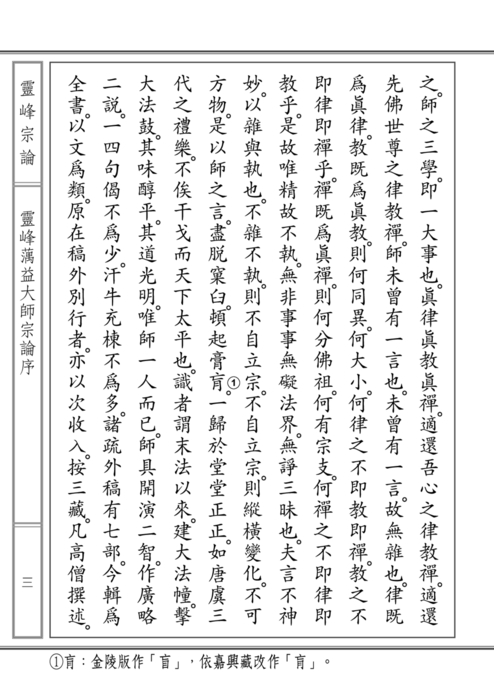 之。師之三學。即一大事也。眞律眞教眞禪。適還吾心之律教禪。適還
先佛世尊之律教禪。師未曾有一言也。未曾有一言。故無雜也。律既
爲眞律。教既爲眞教。則何同異。何大小。何律之不即教即禪。教之不
即律即禪乎。禪既爲眞禪。則何分佛祖。何有宗支。何禪之不即律即
教乎。是故唯精故不執。無非事事無礙法界。無諍三昧也。夫言不神
妙。以雜與執也。不雜不執。則不自立宗。不自立宗。則縱橫變化。不可
方物。是以師之言。盡脫窠臼。頓起膏肓。①一歸於堂堂正正。如唐虞三
代之禮樂。不俟干戈而天下太平也。識者謂末法以來。建大法幢。擊
大法鼓。其味醇乎。其道光明。唯師一人而已。師具開演二智。作廣略
二説。一四句偈不爲少。汗牛充棟不爲多。諸疏外稿有七部。今輯爲
全書。以文爲類。原在稿外別行者。亦以次收入。按三藏。凡高僧撰述。
靈峰宗論
靈峰蕅益大師宗論序
三
①肓：金陵版作「盲」，依嘉興藏改作「肓」。